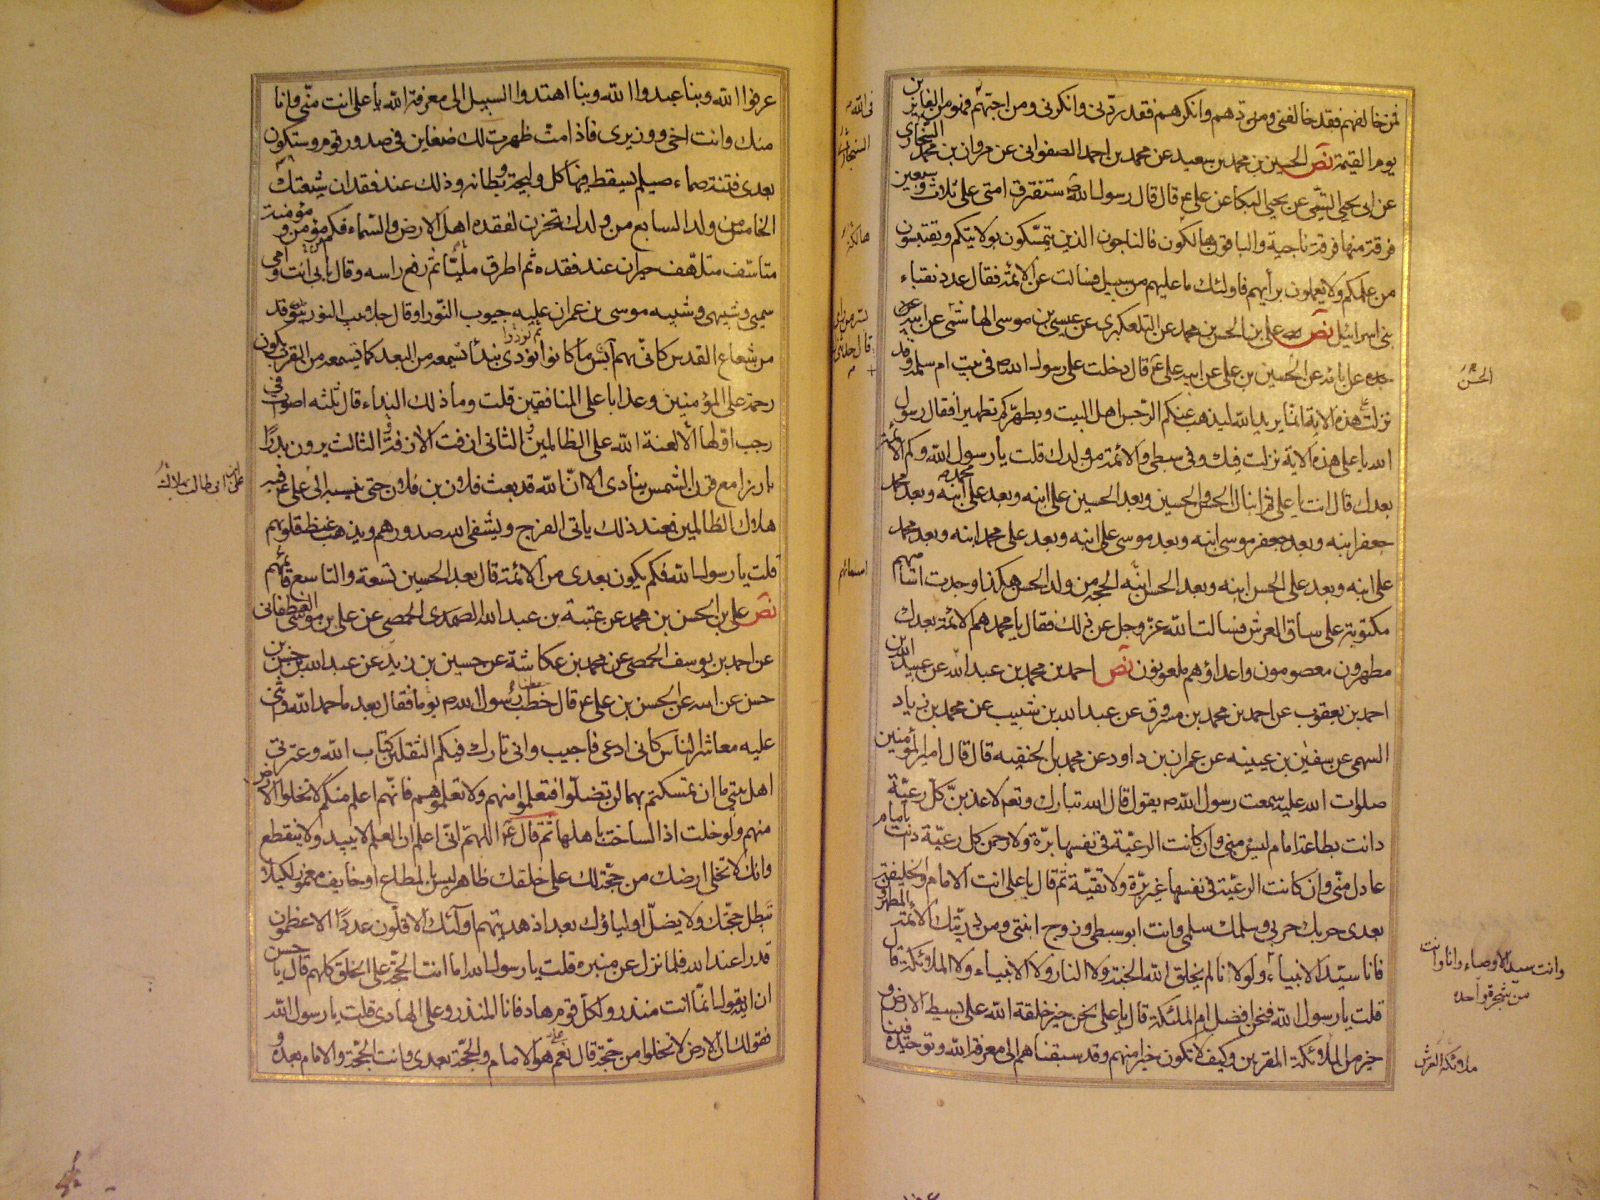 فمن خالفهم فقد خالفني ومن ردهم وانكرهم فقد ردني وانكرني ومن احبهم فهو من الفايزين
يوم القيمة نص الحسين بن محمد بن سعيد عن محمد بن احمد الصفواني عن مروان بن محمد السنجاري
عن ابي يحيى التيمي عن يحيى البكا عن علي ع قال قال رسول الله ص ستفترق امتي على ثلاث وسبعين
فرقة منها فرقة ناجية والباقون هالكون فالناجون الذين يتمسكون بولايتكم ويقتبسون
من علمكم ولا يعملون برأيهم فاولئك ما عليهم من سبيل فسالت عن الائمة فقال عدد نقباء
بني اسرائيل نص علي بن الحسن بن محمد عن التلعكبري عن عيسى بن موسى الهاشمي عن ابيه عن
جده عن ابائه عن الحسين بن علي عن ابيه علي ع قال دخلت على رسول الله ص في بيت ام سلمة وقد
نزلت هذه الاية انما يريد الله ليذهب عنكم الرجس اهل البيت ويطهركم تطهيرا فقال رسول
الله يا علي هذه الاية نزلت فيك وفي سبطي والائمة من ولدك قلت يا رسول الله وكم الائمة
بعدك قال انت يا علي ثم ابناك الحسن والحسين وبعد الحسين علي ابنه وبعد علي محمد ابنه وبعد محمد
جعفر ابنه وبعد جعفر موسى ابنه وبعد موسى علي ابنه وبعد علي محمد ابنه وبعد محمد
علي ابنه وبعد علي الحسن ابنه وبعد الحسن ابنه الحجة من ولد الحسن هكذا وجدت اسماميهم
مكتوبة على ساق العرش فسالت الله عز وجل عن ذلك فقال يا محمد هم الائمة بعدك
مطهرون معصومون واعداؤهم ملعونون نص احمد بن محمد بن عبد الله عن عبيد الله بن
احمد بن يعقوب عن احمد بن محمد بن مسروق عن عبد الله بن شبيب عن محمد بن زياد
السهمي عن سفين بن عيينه عن عمران بن داود عن محمد بن الحنفيه قال قال امير المؤمنين
صلوات الله عليه سمعت رسول الله ص يقول قال الله تبارك وتعم لاعذبن كل رعية
دانت بطاعة امام ليس مني وان كانت الرعية في نفسها برة ولارحمن كل رعية دانت بامام
عادل مني وان كانت الرعية في نفسها غير برة ولا تقية ثم قال يا علي انت الامام والخليفة
بعدي حربك حربي وسلمك سلمي وانت ابو سبطي وزوج ابنتي ومن ذريتك الائمة المطهرون
فانا سيد الانبياء ولولانا لم يخلق الله الجنة ولا النار ولا الانبياء ولا الملائكة قال
قلت يا رسول الله فنحن افضل ام الملئكة قال يا علي نحن خير خلقة الله على بسيط الارض و
خير من الملائكة المقربين وكيف لا نكون خيرا منهم وقد سبقناهم الى معرفة الله وتوحيده فبنا
السنجاري
هالكة
الحسن
وانت سيد الاوصياء وانا وانت
من شجرة واحدة
ملائكة العرش
عرفوا الله وبنا عبدوا الله وبنا اهتدوا السبيل الى معرفة الله يا علي انت مني وانا
منك وانت اخي ووزيري فاذا مت ظهرت لك ضغاين في صدور قوم وستكون
بعدي فتنة صماء صيلم يسقط فيها كل وليجة وبطانة وذلك عند فقدان شيعتك
الخامس من ولد السابع من ولدك تحزن لفقده اهل الارض والسماء فكم مؤمن ومؤمنة
متاسف متلهف حيران عند فقده ثم اطرق مليا ثم رفع راسه وقال بابي انت وامي
سميي وشبيهي وشبيه موسى بن عمران عليه جيوب النور او قال جلابيب النور يتوقد
من شعاع القدس كاني بهم آيس ما كانوا نودي بنداء يسمعه من البعد كما يسمعه من القرب يكون
رحمة على المؤمنين وعذابا على المنافقين قلت وما ذلك النداء قال ثلثه اصوات في
رجب اولها الا لعنة الله على الظالمين الثاني ازفت الازفة الثالث يرون بدرا
بارزا مع قرن الشمس ينادي الا ان الله قد بعث فلان بن فلان حتى ينسبه الى علي ع فيه
هلاك الظالمين فعند ذلك ياتي الفرج ويشفي الله صدورهم ويذهب غيظ قلوبهم
قلت يا رسول الله فكم يكون بعدي من الائمة قال بعد الحسين تسعة والتاسع قائمهم
نص علي بن الحسن بن محمد عن عتبة بن عبد الله الحمصي عن علي بن موسى الغطفاني
عن احمد بن يوسف الحمصي عن محمد بن عكاشة عن حسين بن زيد عن عبد الله بن حسن بن
حسن عن ابيه عن الحسن بن علي ع قال خطب رسول الله ص يوما فقال بعد ما حمد الله واثنى
عليه معاشر الناس كاني ادعى فاجيب واني تارك فيكم الثقلين كتاب الله وعترتي
اهل بيتي ما ان تمسكتم بهما لن تضلوا فتعلموا منهم ولا تعلموهم فانهم اعلم منكم لا تخلوا الارض
منهم ولو خلت اذا لساخت باهلها ثم قال ع اللهم اني اعلم ان العلم لا يبيد ولا ينقطع
وانك لا تخلي ارضك من حجة لك على خلقك ظاهر ليس بالمطاع او خايف مغمور لكيلا
تبطل حجتك ولا يضل اولياؤك بعد اذ هديتهم اولئك الاقلون عددا الاعظمون
قدرا عند الله فلما نزل عن منبره قلت يا رسول الله اما انت الحجة على الخلق كلهم قال يا حسن
ان الله يقول انما انت منذر ولكل قوم هاد فانا المنذر وعلي الهادي قلت يا رسول الله
فقولك ان الارض لا تخلوا من حجة قال نعم هو الامام والحجة بعدي وانت الحجة والامام بعده و